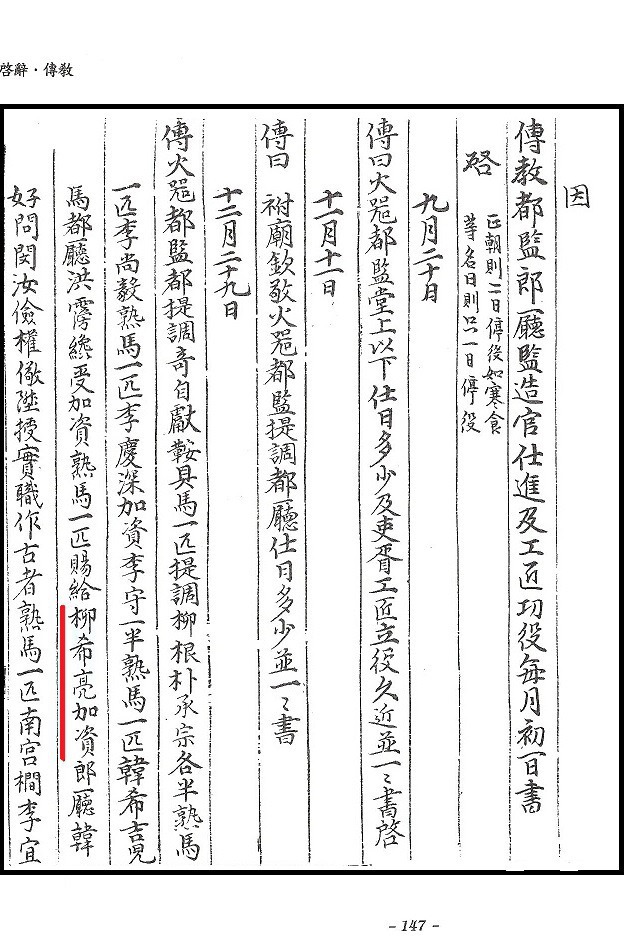 啓辭・傳敎
因
傳教都監郎廳監造官仕進及工匠功役每月初一日書
啓 正朝則二日停役如寒食
等名日則只一日停役
九月二十日
傳曰火器都監堂上以下仕日多少及吏胥工匠立役久近並一々書啓
十一月十一日
傳曰 祔廟欽敬火器都監提調都廳仕日多少並一々書
十二月二十九日
傳火器都監都提調奇自獻鞍具馬一匹提調柳根朴承宗各半熟馬
一匹李尚毅熟馬一匹李慶深加資李守一半熟馬一匹韓希吉兒
馬都廳洪霶纔受加資熟馬一匹賜給柳希亮加資郎廳韓
好問閔汝儉權儆陞授實職作古者熟馬一匹南宮橺李宜
- 147 -